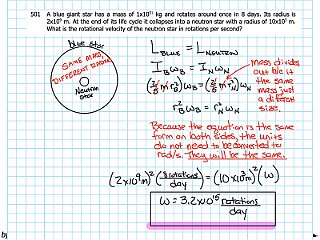 501 A blue giant star has a mass of 1x10³¹ kg and rotates around once in 8 days. Its radius is
2x10⁹ m. At the end of its life cycle it collapses into a neutron star with a radius of 10x10³ m.
What is the rotational velocity of the neutron star in rotations per second?
blue star
SAME MASS,
DIFFERENT RADIUS
Neutron
star
L BLUE = L NEUTRON
I_B ω_B = I_N ω_N
(2/5 m r_B²) ω_B = (2/5 m r_N²) ω_N
r_B² ω_B = r_N² ω_N
mass divides
out b/c it
the same
mass just
a different
size.
Because the equation is the same
form on both sides, the units
do not need to be converted to
rad/s. They will be the same.
(2x10⁹m)² (8 rotations/day) = (10x10³m)² (ω)
ω = 3.2x10¹⁵ rotations
day